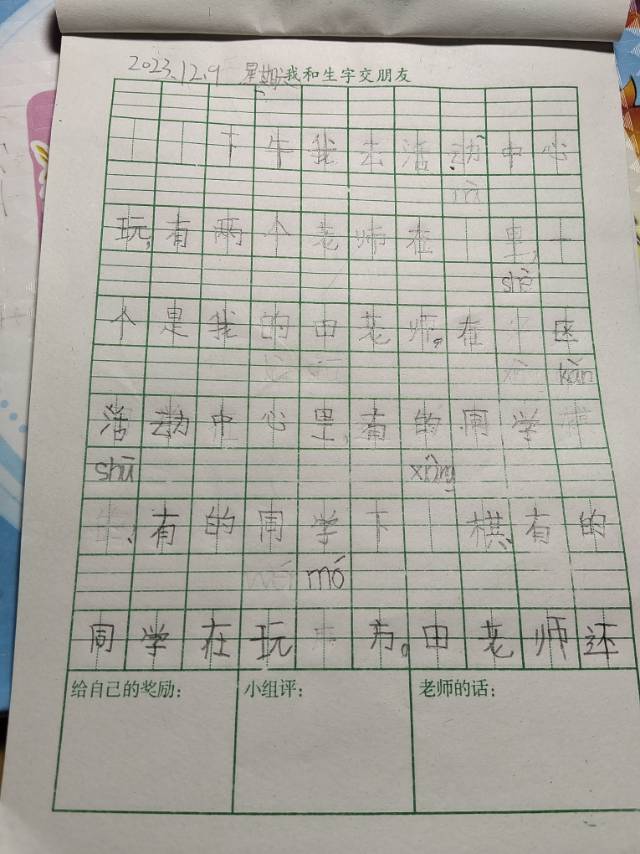 2023.12.9 星期 我和生字交朋友
下午我去活动中心
玩,有两个老师在 里,一
shè
个是我的由老师。在 区
kàn
活动中心里,有的同学
shū
、有的同学下 棋、有的
mó
同学在玩 方。由老师还
给自己的奖励: 小组评: 老师的话: